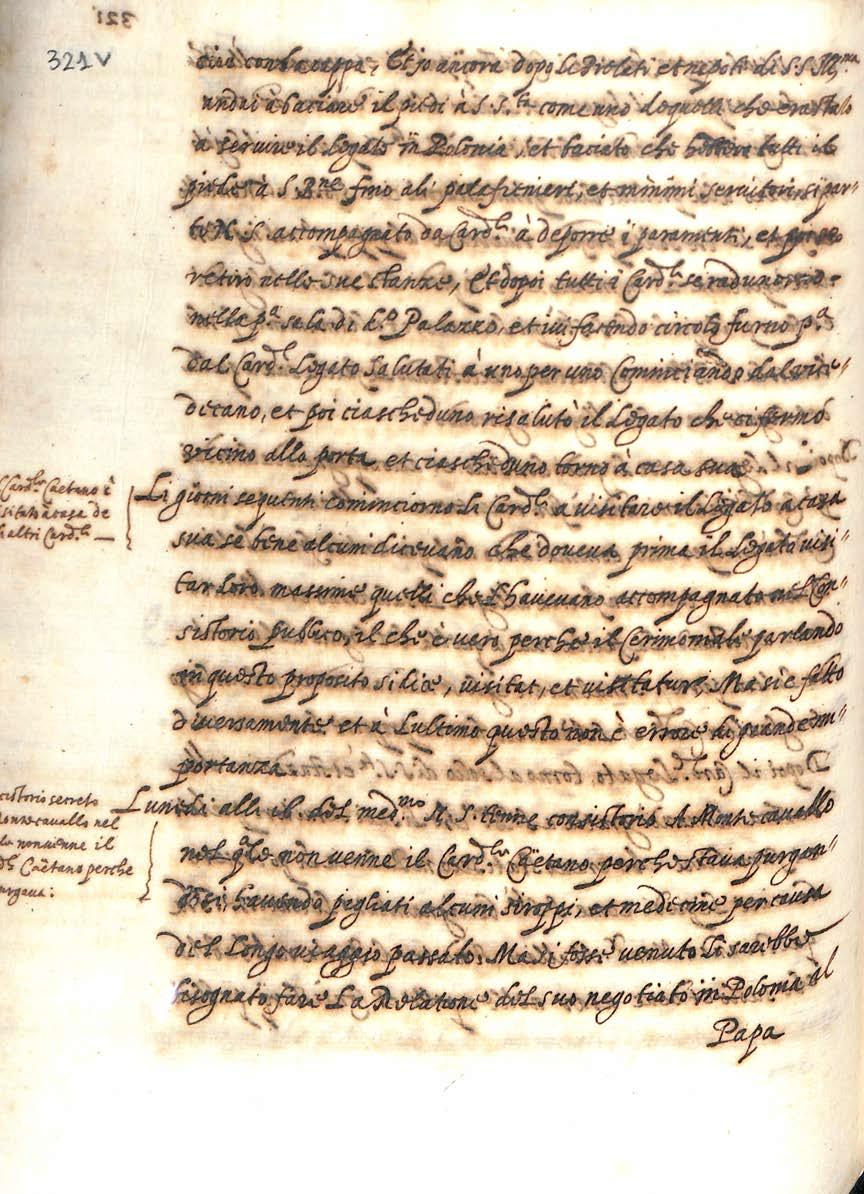 321v
con la cappa, Et jo ancora dopo li Prelati et nepoti di S. S. Ill.ma
andai a baciare il piedi à S. S.tà come uno de quelli che era stato
à servire il legato in Polonia, et baciato che hebbero tutti il
piede à S. B.ne fino ali palafrenieri, et minimi servitori, si par=
te N. S. accompagnato da Card.li à deporre i paramenti, et poi se
retirò nelle sue stanze, Et dopoi tutti i Card.li se radunorno
nella p.a sala di d.o Palazzo, et ivi facendo circolo furno p.a
dal Card.l Legato salutati à uno per uno Cominciando dal vice=
decano, et poi ciascheduno risalutò il Legato che si fermò
vicino alla porta, et ciascheduno tornò à casa sua
Card.le Caetano è
visitato à casa de
altri Card.li
Li giorni sequenti cominciorno li Card.li à visitare il Legato à casa
sua se bene alcuni dicevano che doveva prima il Legato visi=
tar loro, massime quelli che l'havevano accompagnato nel Con=
sistorio publico, il che è vero perche il Cerimoniale parlando
in questo proposito si dice, visitat, et visitatur, Ma si è fatto
diversamente et à l'ultimo questo non è errore di grande im=
portanza
Concistorio secreto
Montecavallo nel
non venne il
Caëtano perche
purgava:
Lunedi alli 16. del med.mo N. S. tenne consistorio A Monte cavallo
nel q.le non venne il Card.le Caëtano perche stava purgan=
dosi havendo pigliati alcuni siroppi, et medecine per causa
del longo viaggio passato. Ma si fosse venuto li sarebbe
bisognato fare La Relatione del suo negotiato in Polonia al
Papa